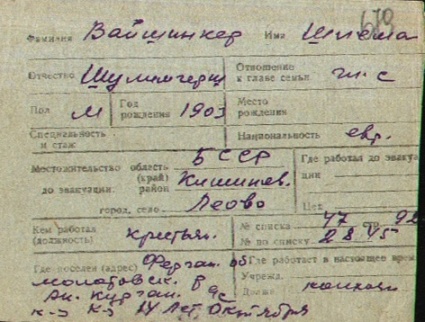 679
Фамилия Вайшинкер Имя Шлема
Отчество Шулимовна Отношение к главе семьи гл. с
Пол М Год рождения 1903 Место рождения
Специальность и стаж Национальность евр.
Местожительство до эвакуации: область (край) БССР Где работал до эвакуации
район Кишинев.
город, село Леово Цех
Кем работал (должность) крестьян. № списка 47 92
№ по списку 28
Где поселен (адрес) Ферган. об Где работает в настоящее время
Молотовск. р Учрежд.
Ак. Курган. с/с Должн. колхозн
к-з IX Лет Октября